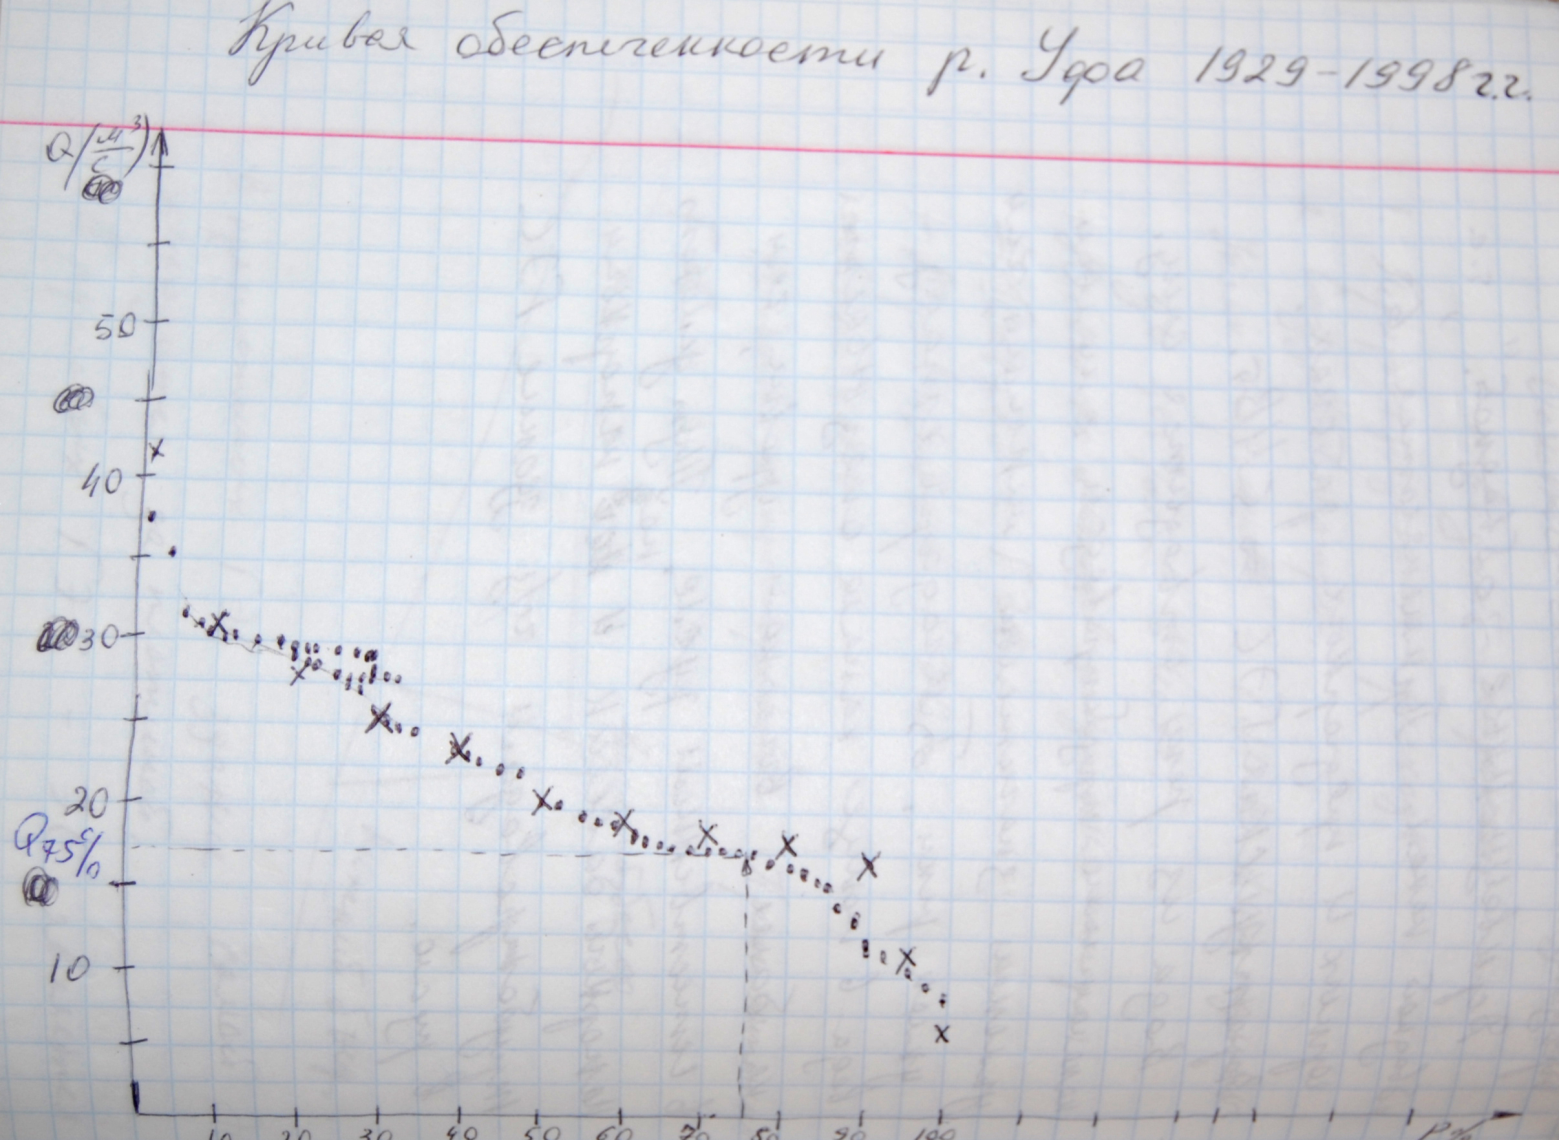 Кривая обеспеченности р. Уфа 1929-1998 г.г.
Q(м³/с)
50
40
30
20
Q75%
10
10 20 30 40 50 60 70 80 90 100